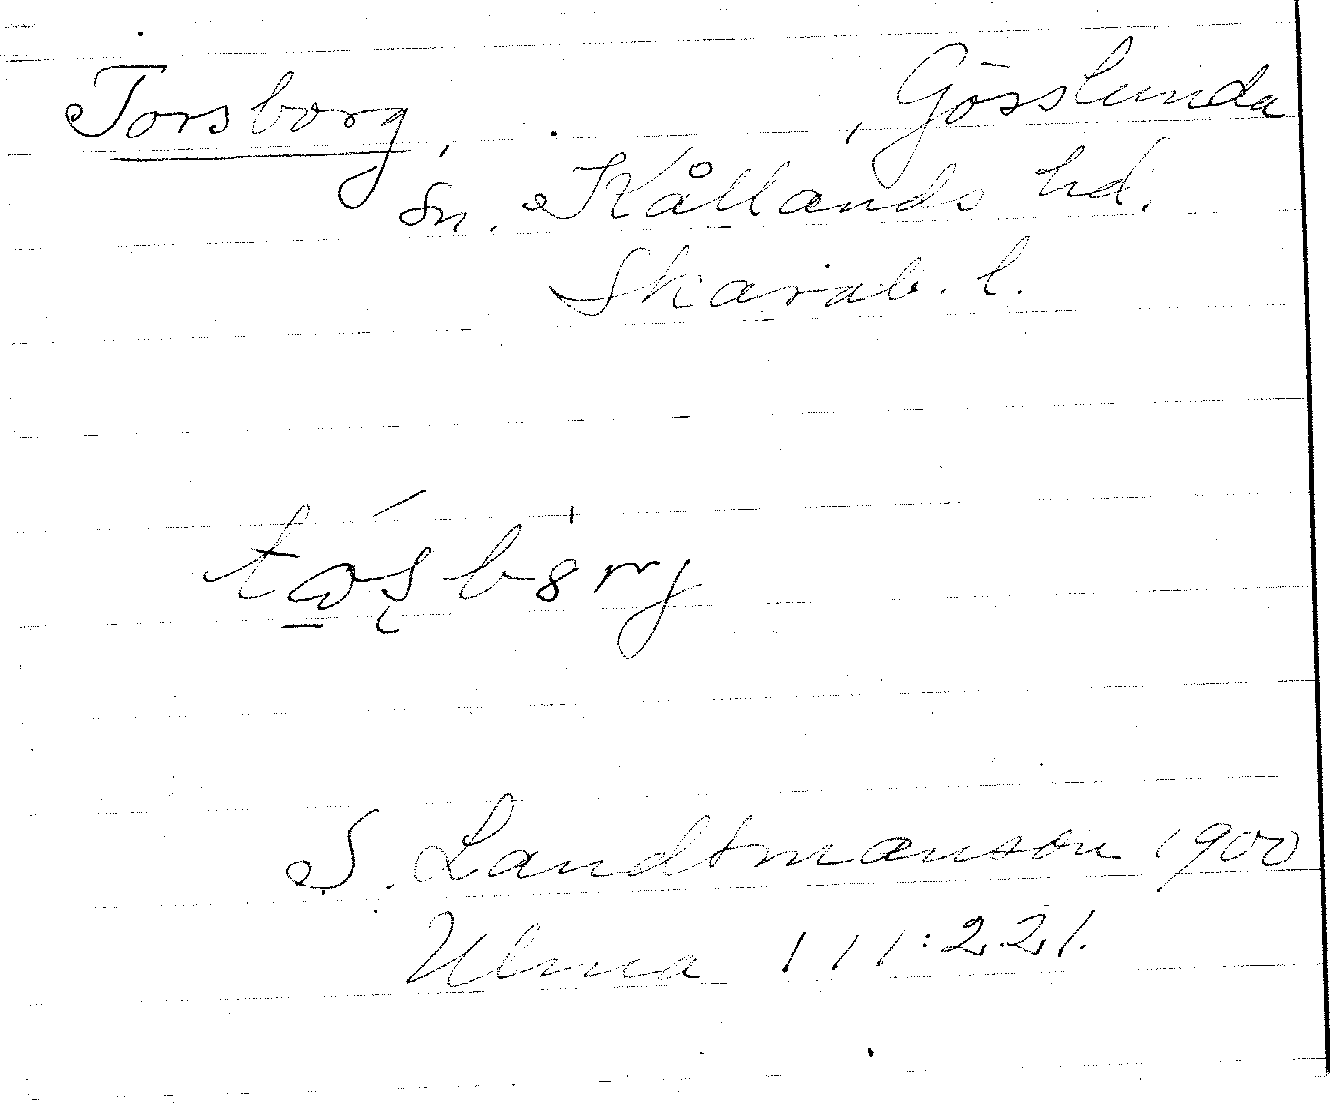 Torsborg, , Gösslunda
sn. Kållands hd.
Skarab. l.
S. Landtmanson 1900
Ulma 111:221.